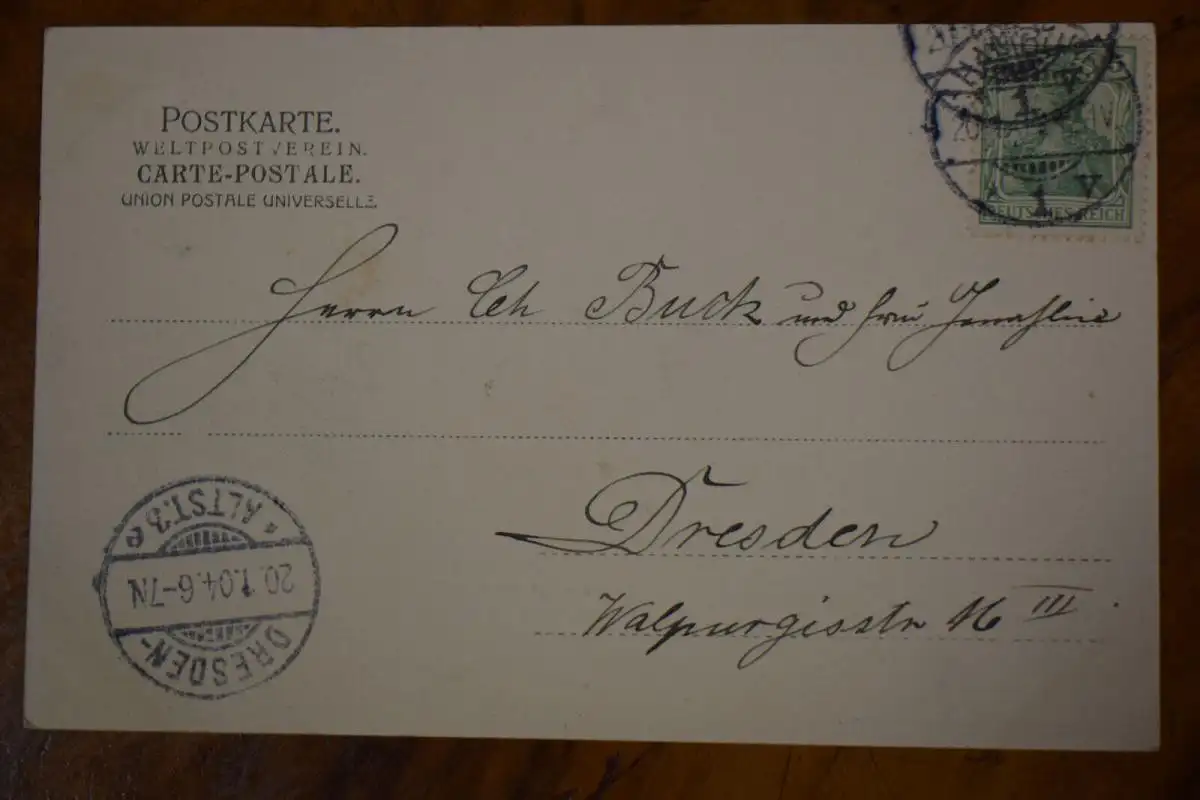 POSTKARTE.
WELTPOSTVEREIN.
CARTE-POSTALE.
UNION POSTALE UNIVERSELLE
HAMBURG
1
20.
V
1 V
DEUTSCHES REICH
Herrn Ch Buck und Frau
Dresden
Walpurgisstr 16 III
DRESDEN-
20.1.04.6-7N
* ALTST.3 e